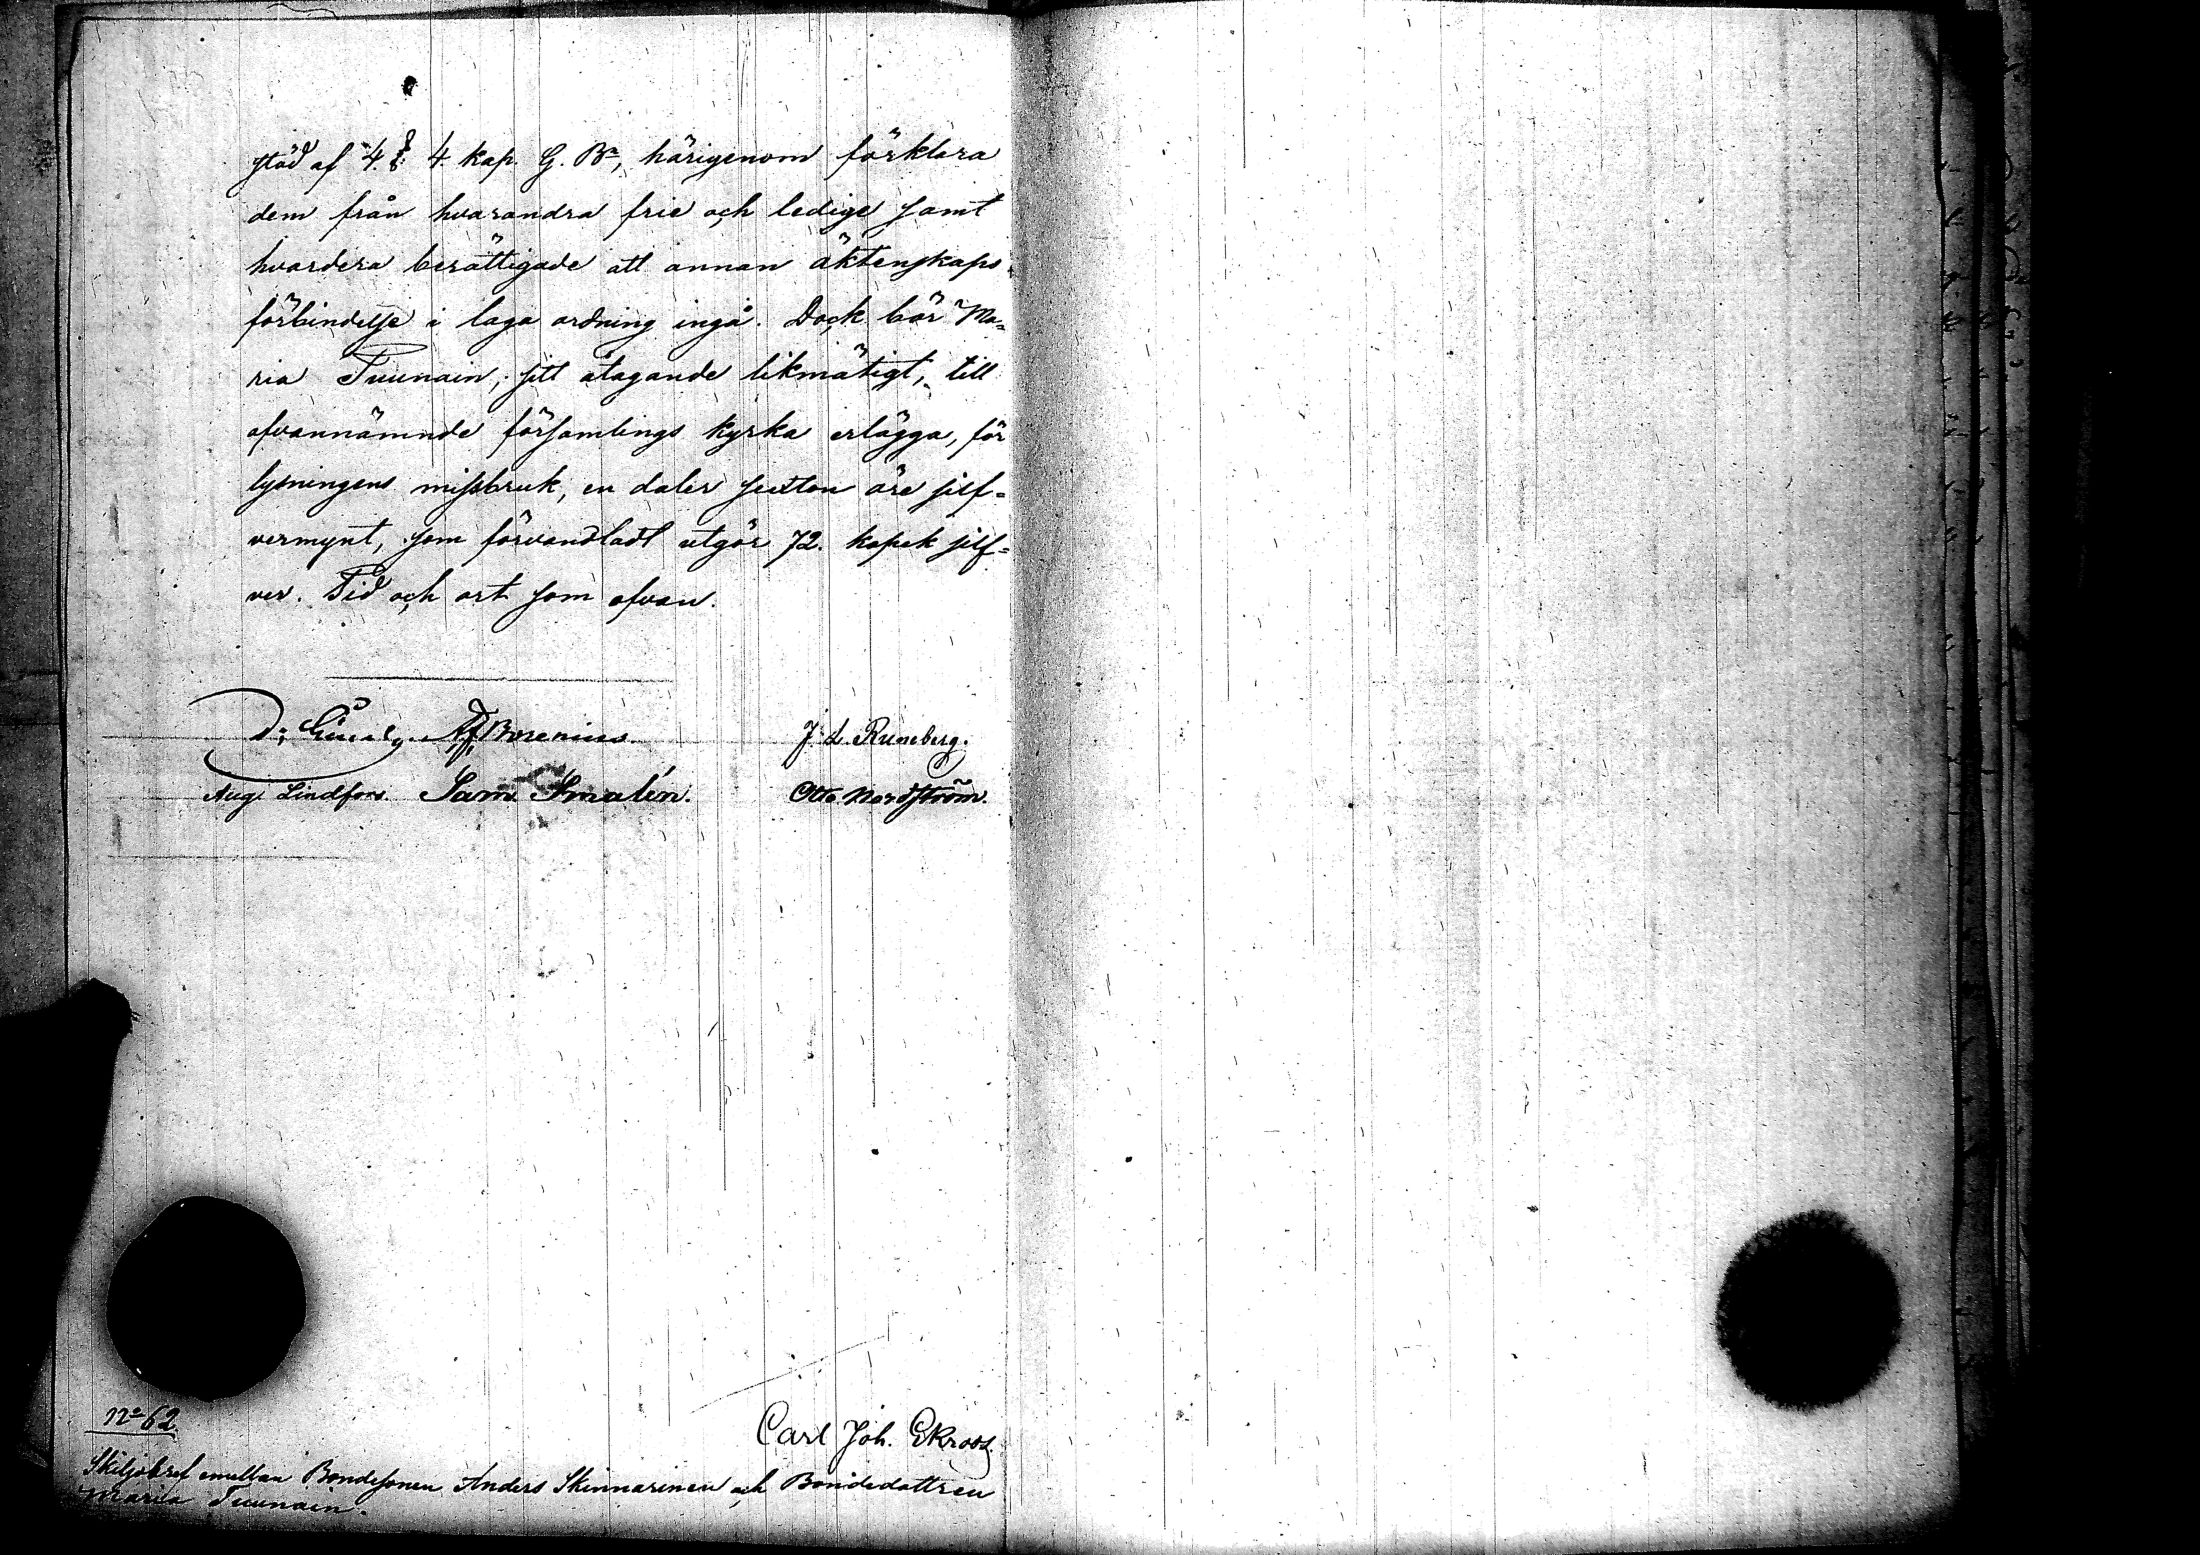 stöd af 4. § 4 kap. G. Bn, härigenom förklara
dem från hvarandra frie och ledige samt
hvardera berättigade att annan äktenskaps-
förbindelse i laga ordning ingå. Dock bör Ma-
ria Tuunain, sitt åtagande likmätigt, till
ofvannämnde församlings kyrka erlägga, för
lysningens missbruk, en daler sexton öre silf-
vermynt, som förvandladt utgör 72. kopek silf-
ver. Tid och ort som ofvan.
Borenius J. L. Runeberg.
Aug. Lindfors. Sam. Smalén. Otto Nordström.
No 62.
Carl Joh. Ekroos.
Skiljobref emellan Bondesonen Anders Skinnarinen och Bondedottren
Maria Tuunain.